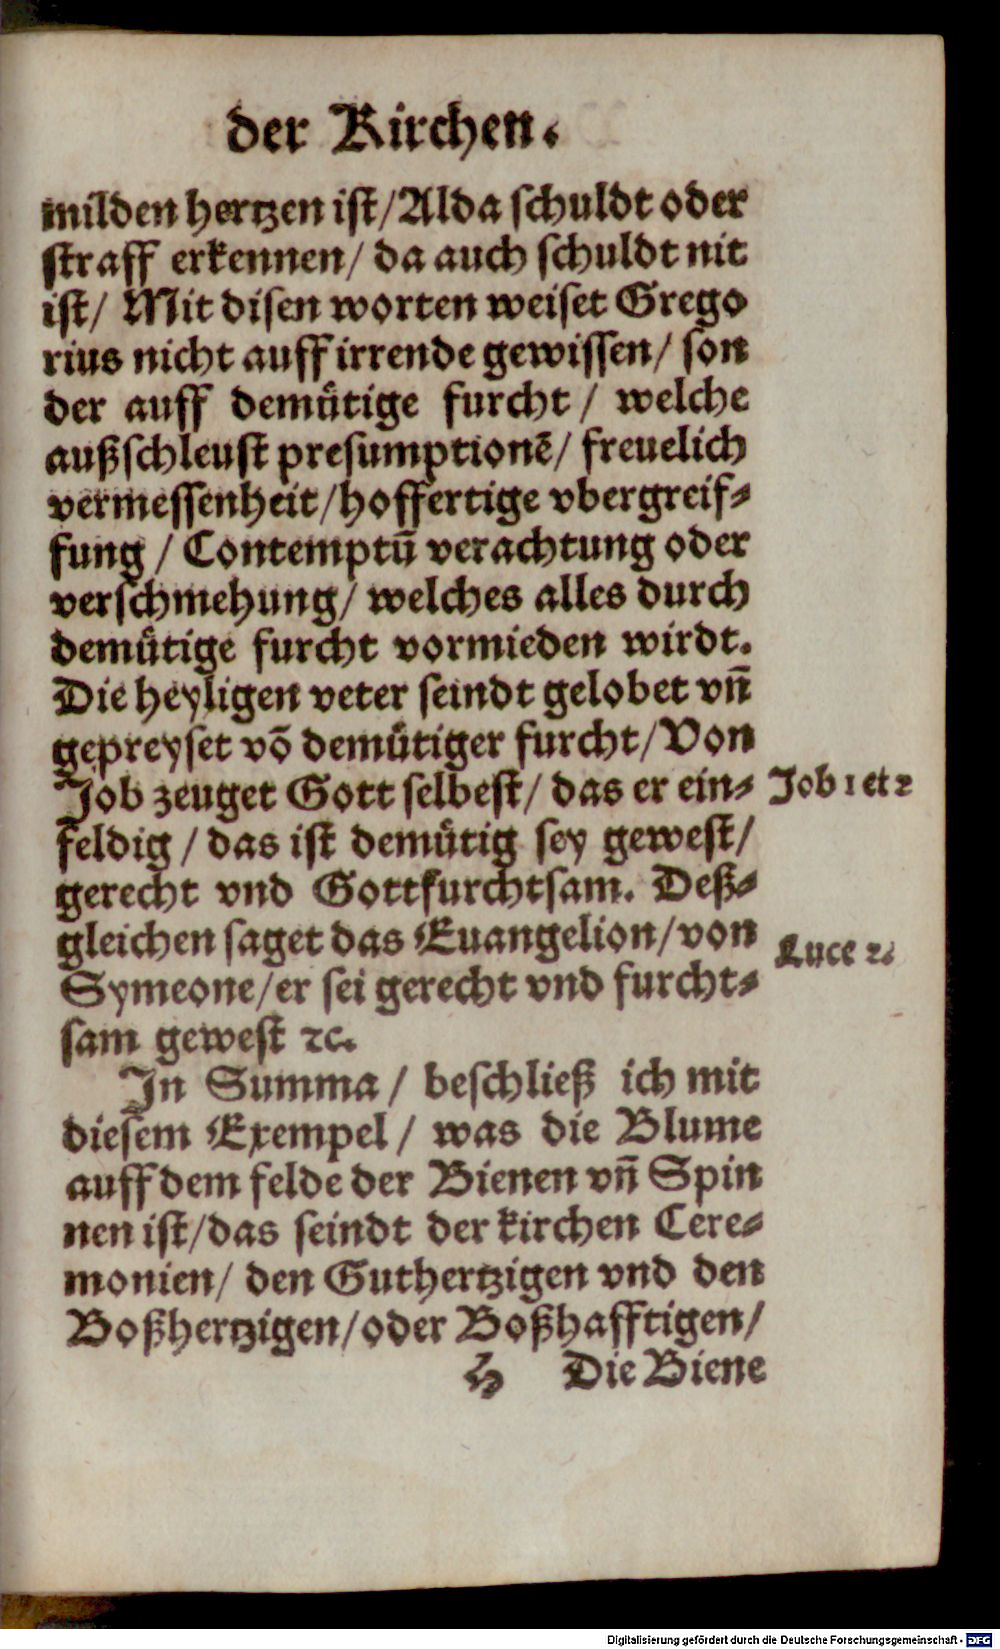 der Kirchen.
milden hertzen ist/Alda schuldt oder
straff erkennen/ da auch schuldt nit
ist/ Mit disen worten weiset Grego
rius nicht auff irrende gewissen/ son
der auff demuͤtige furcht/ welche
außschleust presumptionē/ freuelich
vermessenheit/hoffertige vbergreif⸗
fung/ Contemptū verachtung oder
verschmehung/ welches alles durch
demuͤtige furcht vormieden wirdt.
Die heyligen veter seindt gelobet vn̄
gepreyset vō demuͤtiger furcht/Von
Job zeuget Gott selbest/ das er ein⸗
Job 1 et 2
feldig/ das ist demuͤtig sey gewest/
gerecht vnd Gottfurchtsam. Deß⸗
gleichen saget das Euangelion/von
Luce 2.
Symeone/er sei gerecht vnd furcht⸗
sam gewest ꝛc.
In Summa/ beschließ ich mit
diesem Exempel/ was die Blume
auff dem felde der Bienen vn̄ Spin
nen ist/das seindt der kirchen Cere⸗
monien/ den Guthertzigen vnd den
Boßhertzigen/oder Boßhafftigen/
H Die Biene
Digitalisierung gefördert durch die Deutsche Forschungsgemeinschaft - DFG